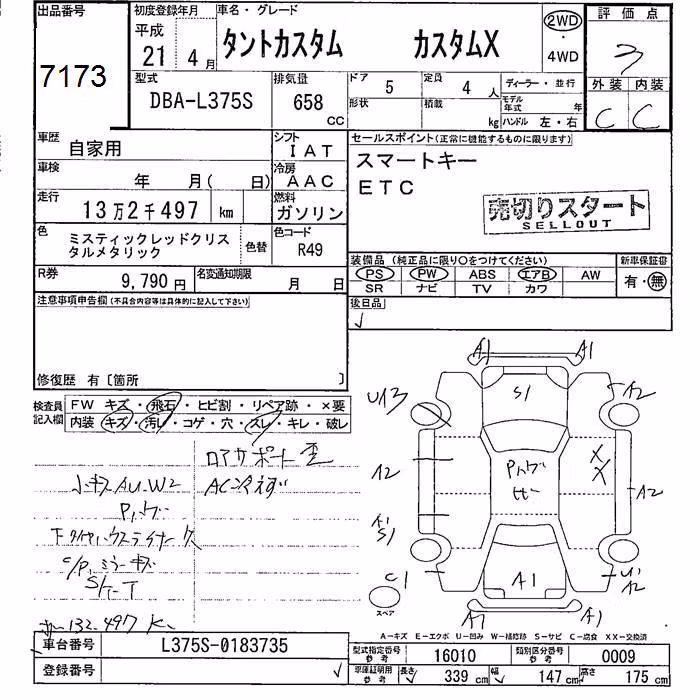 出品番号
7173
初度登録年月
平成
21 4月
車名・グレード
タントカスタム カスタムX
2WD
・
4WD
評価点
3
外装 内装
C C
型式
DBA-L375S
排気量
658
CC
ドア
5
定員
4人
形状
積載
kg
ディーラー・並行
モデル年式 年
ハンドル 左・右
車歴
自家用
シフト
IAT
車検
年 月( 日)
冷房
AAC
走行
13万2千497 km
燃料
ガソリン
色
ミスティックレッドクリスタルメタリック
色替
色コード
R49
R券
9,790円
名変通知期限
月 日
セールスポイント(正常に機能するものに限ります)
スマートキー
ETC
売切りスタート
SELLOUT
装備品(純正品に限り○をつけてください)
PS PW ABS エアB AW
SR ナビ TV カワ
新車保証書
有・無
後日品
✓
注意事項申告欄(不具合内容等は具体的に記入して下さい)
修復歴 有〔箇所 〕
検査員記入欄
FW キズ・飛石・ヒビ割・リペア跡・×要
内装 キズ・汚れ・コゲ・穴・スレ・キレ・破レ
ロアサポート歪
小キズAU.W2
AC冷えず
下タイヤハウスライナー欠
C/P,ミラーキズ
132.497K
A1 A1
S1
U13
A2
A2
X
X
A2
A1
S1
C1
スペア
A1
U1
A2
A1
A1
A-キズ E-エクボ U-凹み W-補修跡 S-サビ C-腐食 XX-交換済
車台番号
L375S-0183735
登録番号
✓
型式指定番号
参考
16010
類別区分番号
参考
0009
車庫証明用
参考
長さ
339 cm
幅
147 cm
高さ
175 cm